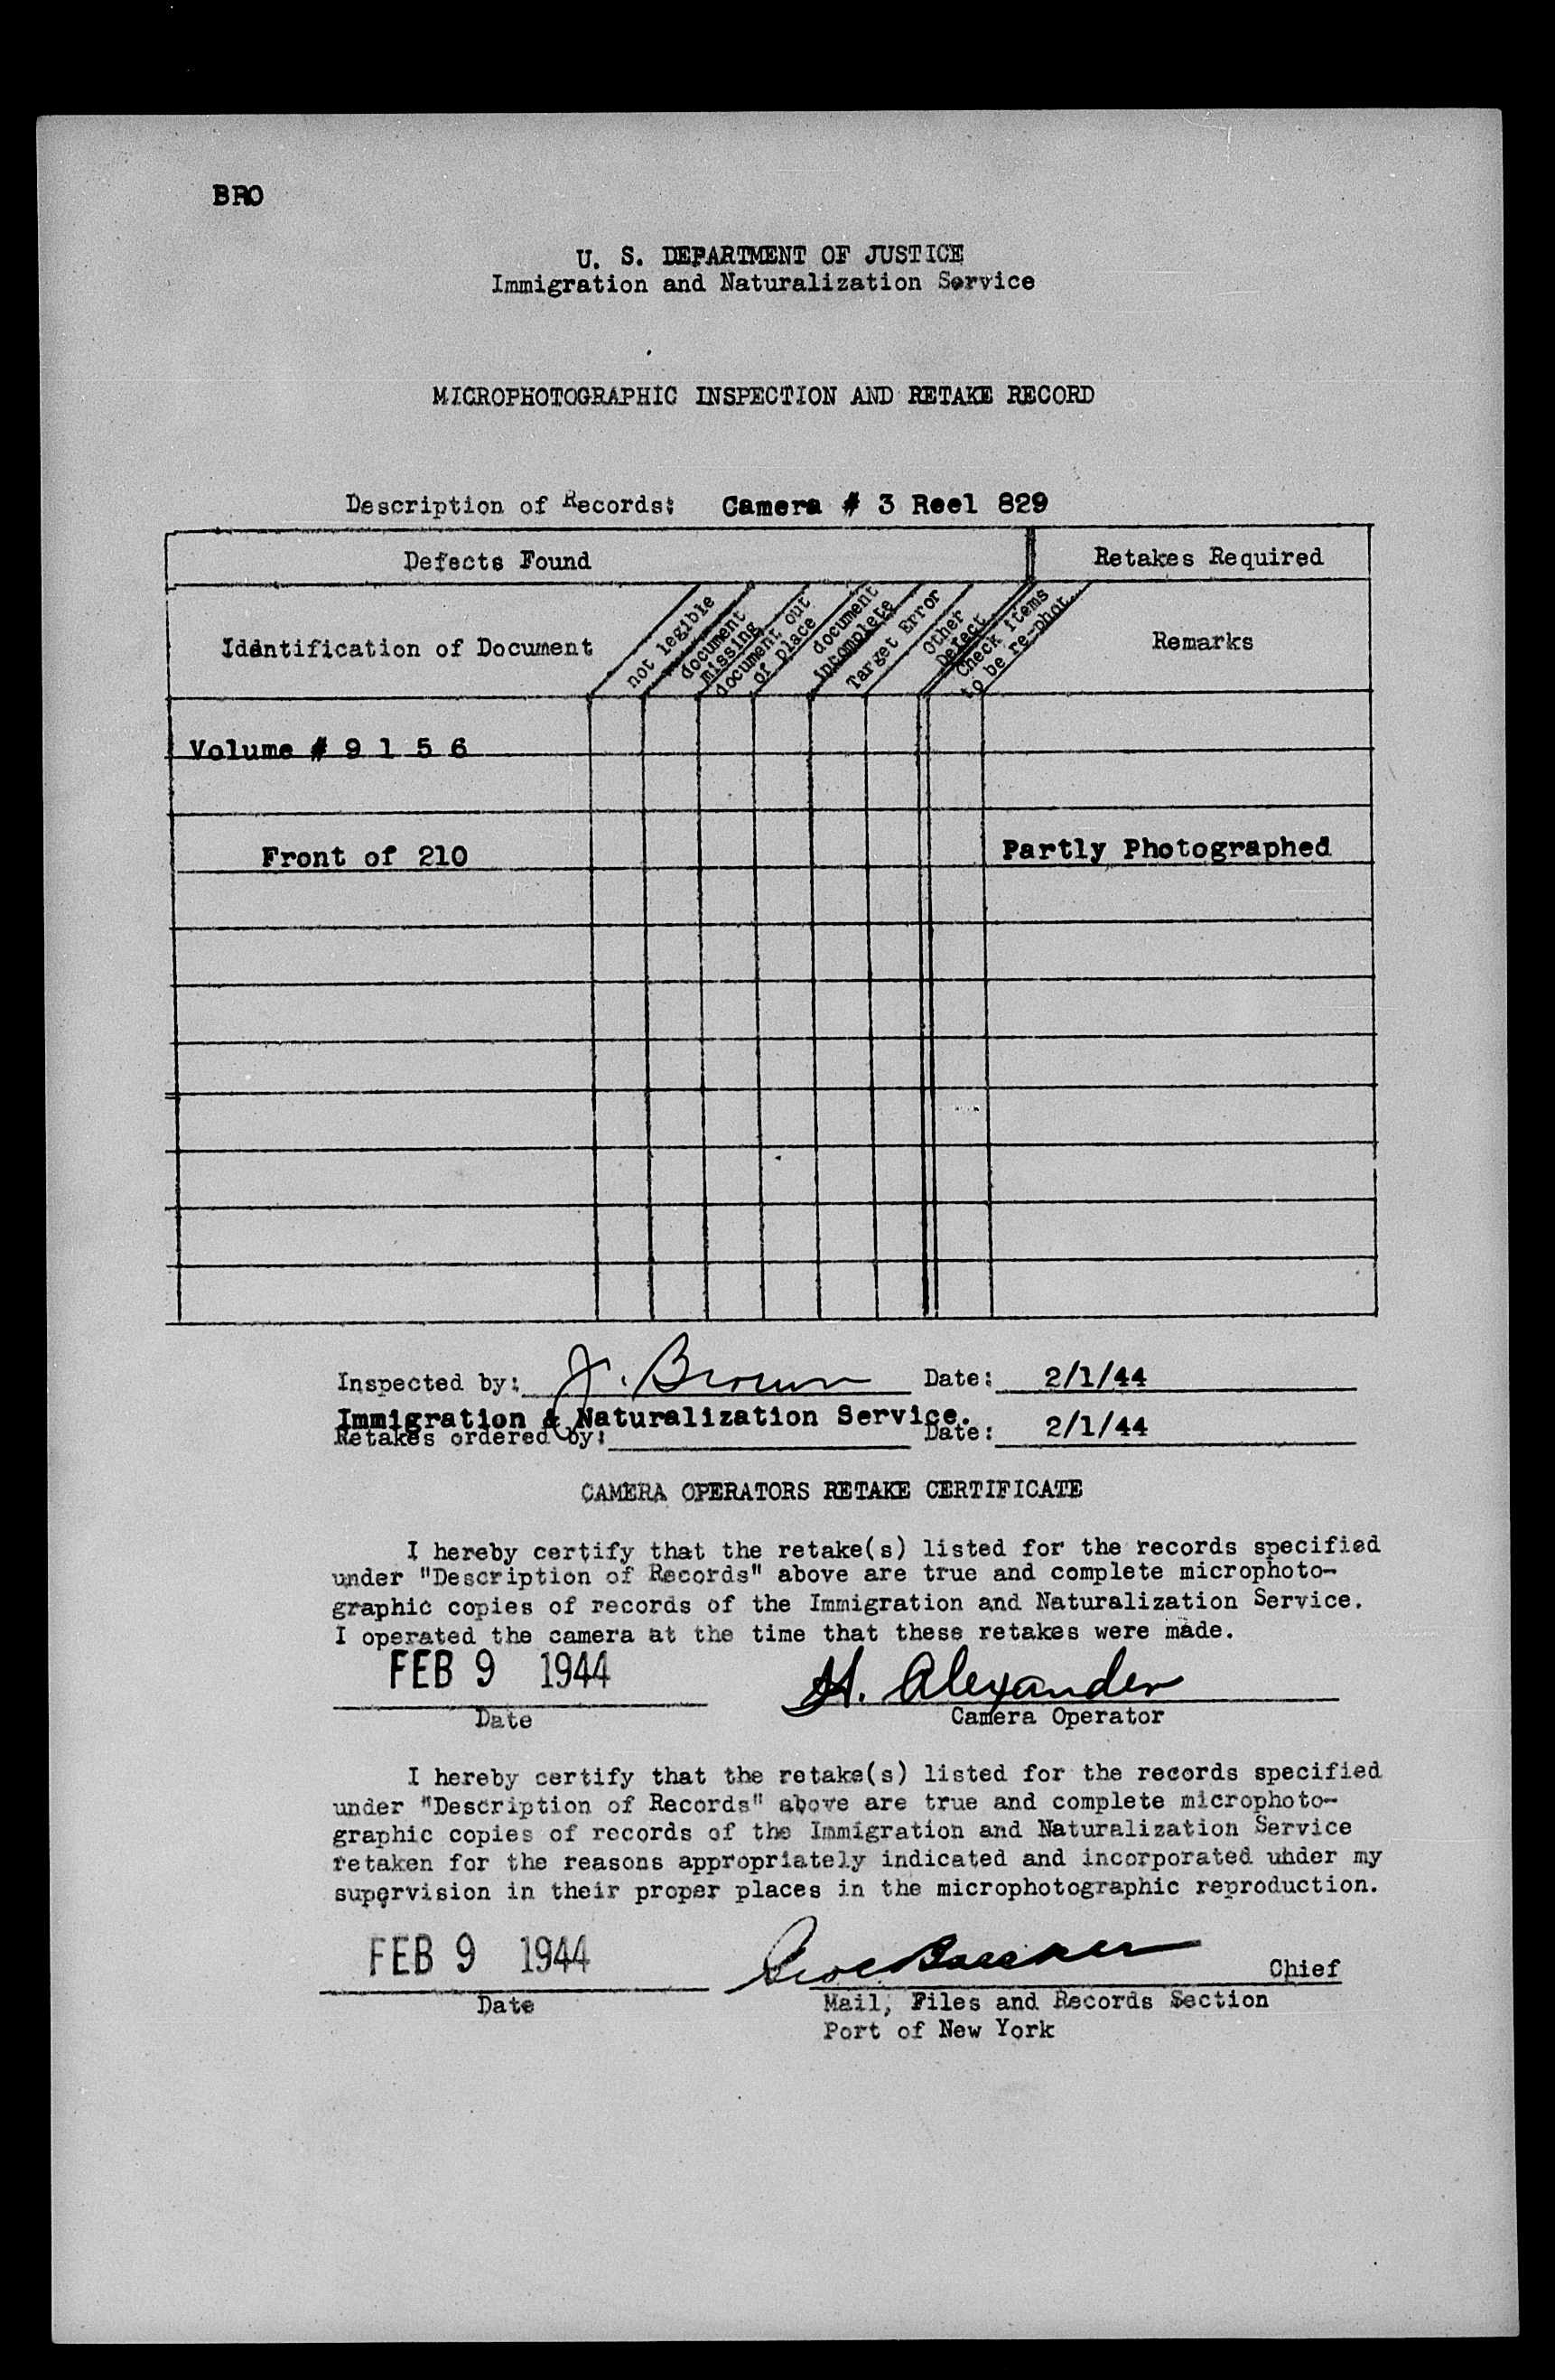 BRO
U. S. DEPARTMENT OF JUSTICE
Immigration and Naturalization Service
MICROPHOTOGRAPHIC INSPECTION AND RETAKE RECORD
Description of Records: Camera # 3 Reel 829
Defects Found
Retakes Required
Identification of Document
not legible
document
missing
document out
of place
document
incomplete
Target Error
Other
Defect
Check items
to be re-phot.
Remarks
Volume # 9 1 5 6
Front of 210
Partly Photographed
Inspected by: J. Brown Date: 2/1/44
Immigration & Naturalization Service.
Retakes ordered by: Date: 2/1/44
CAMERA OPERATORS RETAKE CERTIFICATE
I hereby certify that the retake(s) listed for the records specified
under "Description of Records" above are true and complete microphoto-
graphic copies of records of the Immigration and Naturalization Service.
I operated the camera at the time that these retakes were made.
FEB 9 1944 H. Alexander
Date Camera Operator
I hereby certify that the retake(s) listed for the records specified
under "Description of Records" above are true and complete microphoto-
graphic copies of records of the Immigration and Naturalization Service
retaken for the reasons appropriately indicated and incorporated uhder my
supervision in their proper places in the microphotographic reproduction.
FEB 9 1944 Chief
Date Mail, Files and Records Section
Port of New York